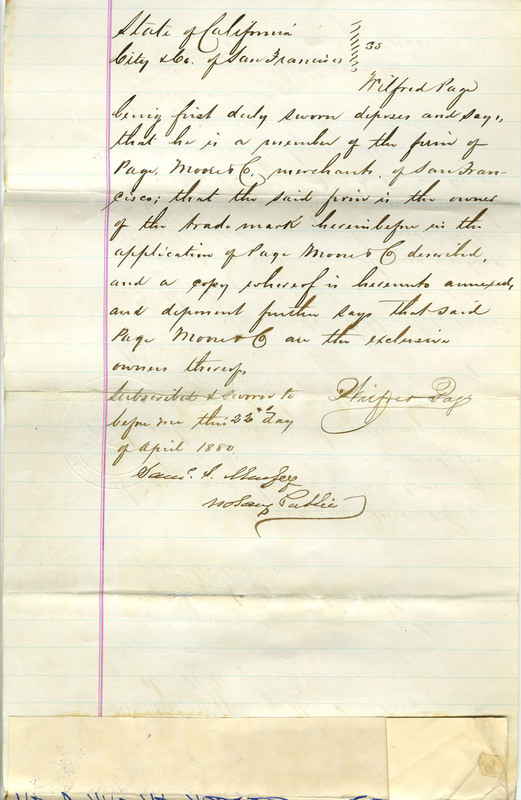 State of California
City & Co. of San Francisco } ss
Wilfred Page
being first duly sworn deposes and says,
that he is a member of the firm of
Page, Moore & Co, merchants, of San Fran-
cisco; that the said firm is the owner
of the trade mark hereinbefore in the
application of Page Moore & Co described,
and a copy whereof is hereunto annexed,
and deponent further says that said
Page Moore & Co are the exclusive
owners thereof.
Subscribed & sworn to Wilfred Page
before me this 22nd day
of April 1880
Saml. S.
Notary Public